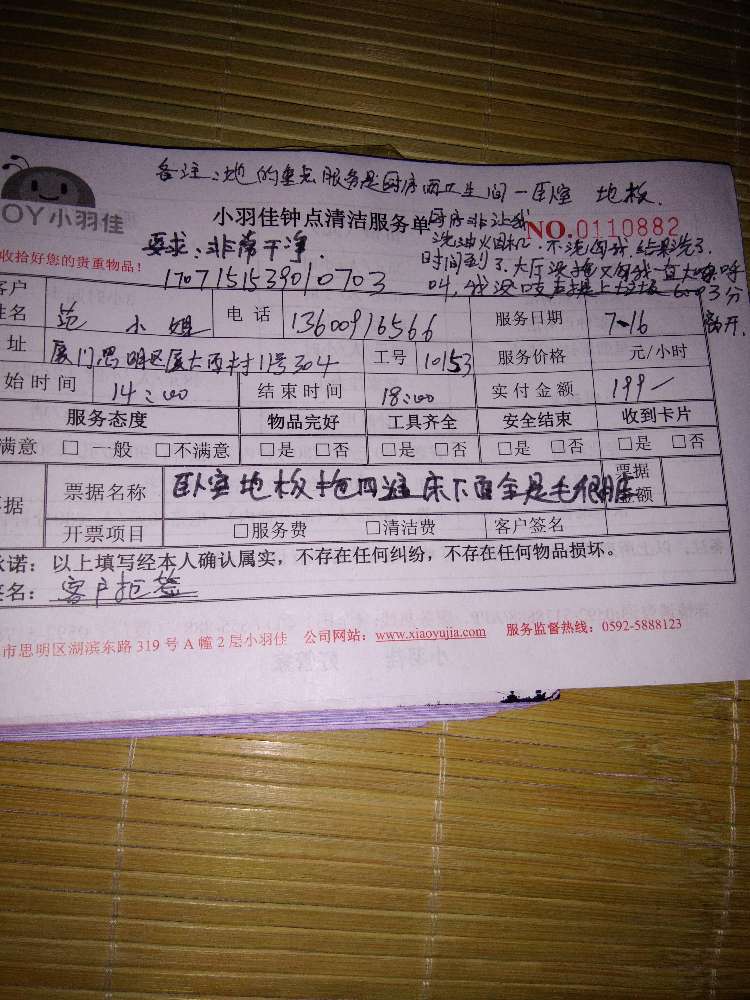 备注:地的重点服务是厨房两卫生间一卧室 地板.
OY小羽佳
小羽佳钟点清洁服务单
NO.0110882
厨房非让我
洗油烟机.不洗闹我.结果洗了.
时间到了.大厅没拖又闹我一直大喊呼
叫,我没吱声提上垃圾 6093分
离开.
要求:非常干净.
收拾好您的贵重物品!
170715153901 0703
客户
姓名 范小姐 电话 13600916566 服务日期 7-16
址 厦门思明区厦大西村11号304 工号 10153 服务价格 元/小时
始时间 14:00 结束时间 18:00 实付金额 199-
服务态度 物品完好 工具齐全 安全结束 收到卡片
满意 □一般 □不满意 □是 □否 □是 □否 □是 □否 □是 □否
据 票据名称 卧室地板拖四遍床下面全是毛很脏 票据
金额
开票项目 □服务费 □清洁费 客户签名
承诺:以上填写经本人确认属实,不存在任何纠纷,不存在任何物品损坏。
签名:客户拒签
市思明区湖滨东路319号A幢2层小羽佳 公司网站:www.xiaoyujia.com 服务监督热线:0592-5888123